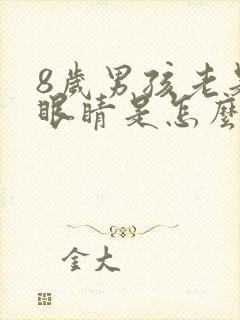 8歲男孩老是
眼睛是怎麼
金大